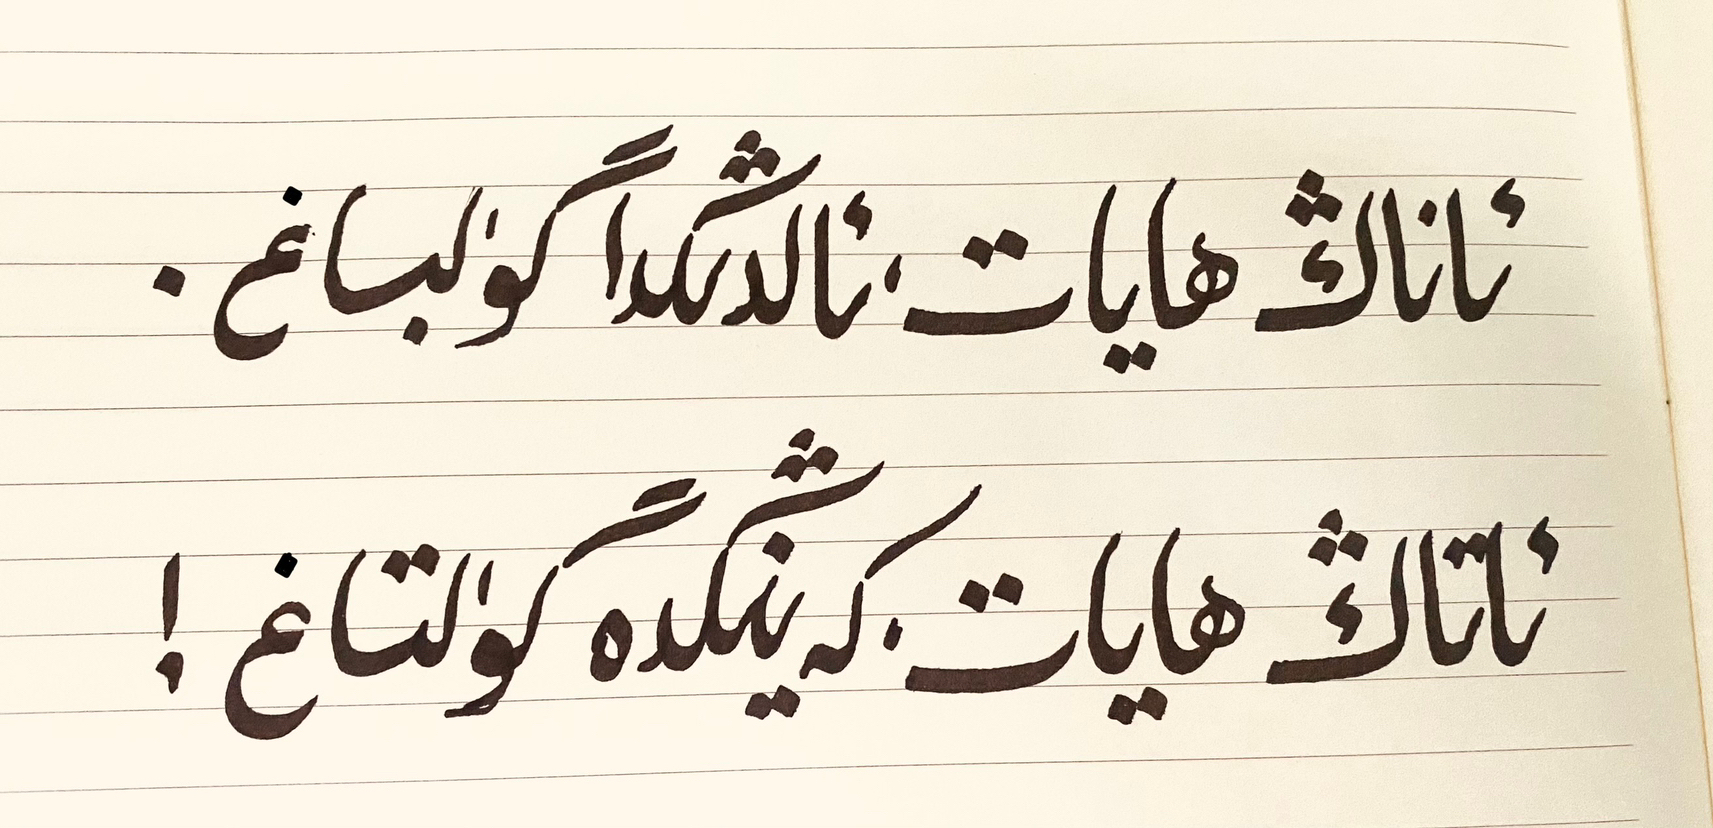 ئاناڭ ھايات، ئالدىڭدا گۈلباغ.
ئاتاڭ ھايات، كەينىڭدە گۈلتاغ!